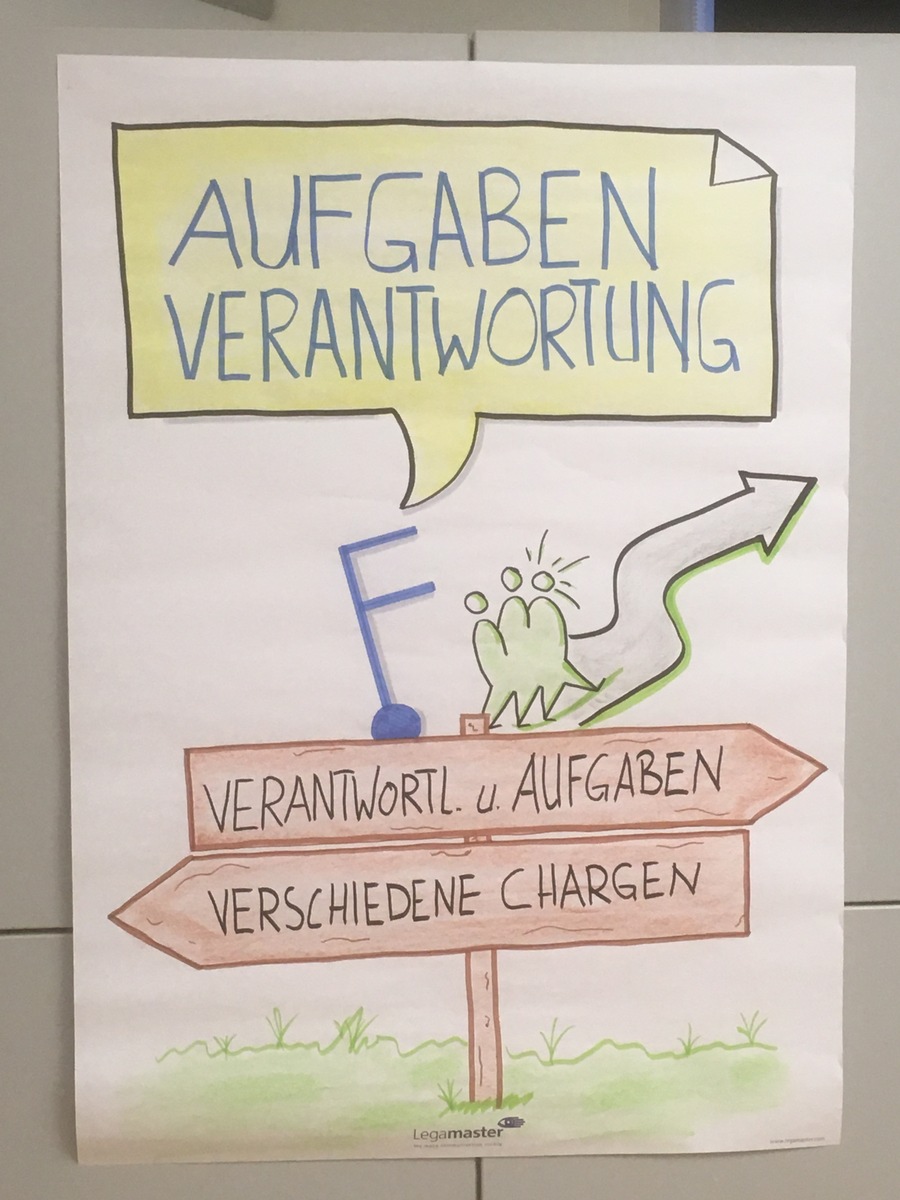 AUFGABEN
VERANTWORTUNG
VERANTWORTL. u. AUFGABEN
VERSCHIEDENE CHARGEN
Legamaster
www.legamaster.com